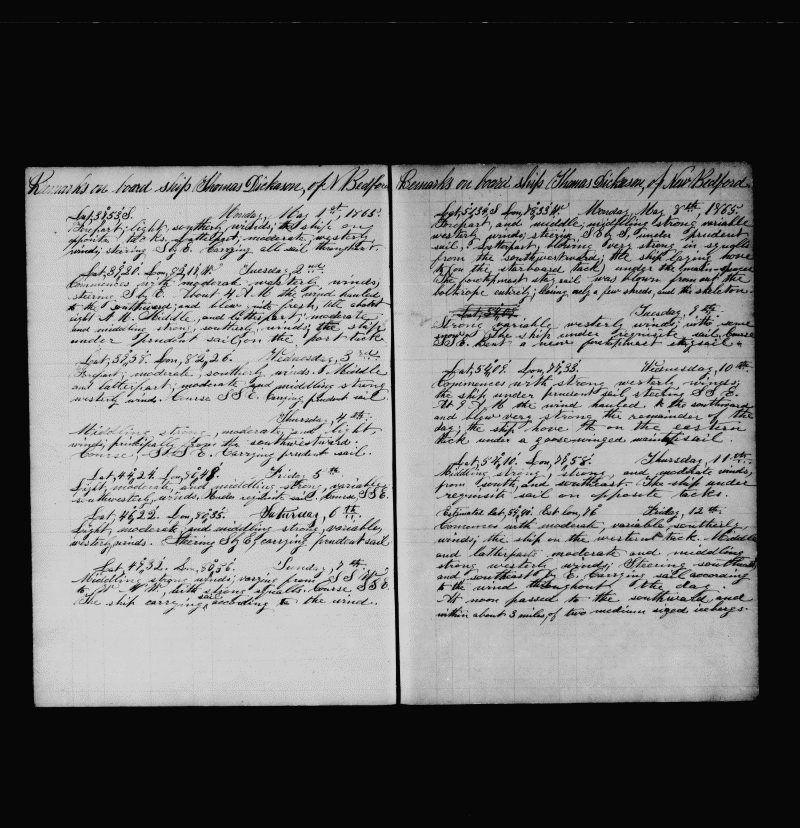 Remarks on board ship Thomas Dickason, of N Bedford
Monday, May 1st, 1865.
Forepart, light, southerly winds; the ship on
opposite tacks. Latterpart, moderate, westerly
winds; steering S by E. Carrying all sail throughout.
Tuesday 2nd
Commences with moderate westerly winds;
steering S by E. About 4 A.M. the wind hauled
to the southward; and blew quite fresh, till about
eight A.M. Middle, and latterpart; moderate,
and middling strong, southerly, winds; the ship
under prudent sail; on the port tack
Wednesday, 3rd
Forepart; moderate, southern winds. Middle
and latterpart; moderate and middling strong
westerly winds. Course S S E. Carrying prudent sail.
Thursday, 4th
Middling strong, moderate, and light,
winds; principally from the southwestward.
Course, S S E. Carrying prudent sail.
Friday 5th
Light, moderate, and middling strong, variable,
southwesterly, winds. Under requisite sail. Course S S E.
Lat, 46,22. Lon, 80,35. Saturday, 6th
Light, moderate, and middling strong, variable,
western winds. Steering S by E, carrying prudent sail
Sunday, 7th
Middling strong winds; varying from S S W
to W N W, with strong squalls. Course S S E.
The ship carrying sail according to the wind.
Remarks on board ship Thomas Dickason, of New Bedford.
Monday, May 8th, 1865.
Forepart, and middle; middling strong variable
westerly winds; steering S S E, under prudent
sail. Latterpart, blowing very strong in squalls
from the southwestward; the ship laying hove
to (on the starboard tack) under the
The foretopmast staysail was blown from out the
boltrope entirely; leaving only a few shreds, and the skeleton.
Tuesday, 9th
Strong variable westerly winds; with some
snow. The ship under requisite sail. Course
S S E. Bent a new foretopmast staysail.
Lat, 54,09. Lon, 79,33. Wednesday 10th
Commences with strong westerly winds;
the ship under prudent sail steering S S E.
At 8 P.M. the wind hauled to the southward
and blew very strong the remainder of the
day; the ship hove to on the eastern
tack under a goose-winged maintopsail.
Lat, 54,10. Lon, 79,58. Thursday, 11th
Middling strong, strong, and moderate winds,
from south, and southeast. The ship under
requisite sail on opposite tacks.
Estimated Lat, 54,40. Est Lon, 76 Friday, 12th
Comences with moderate, variable southerly
winds; the ship on the western tack. Middle
and latterpart; moderate and middling
strong westerly winds; Steering southeast,
and southeast by E. Carrying sail according
to the wind throughout the day.
At noon passed to the southward and
within about 3 miles of two medium sized icebergs.